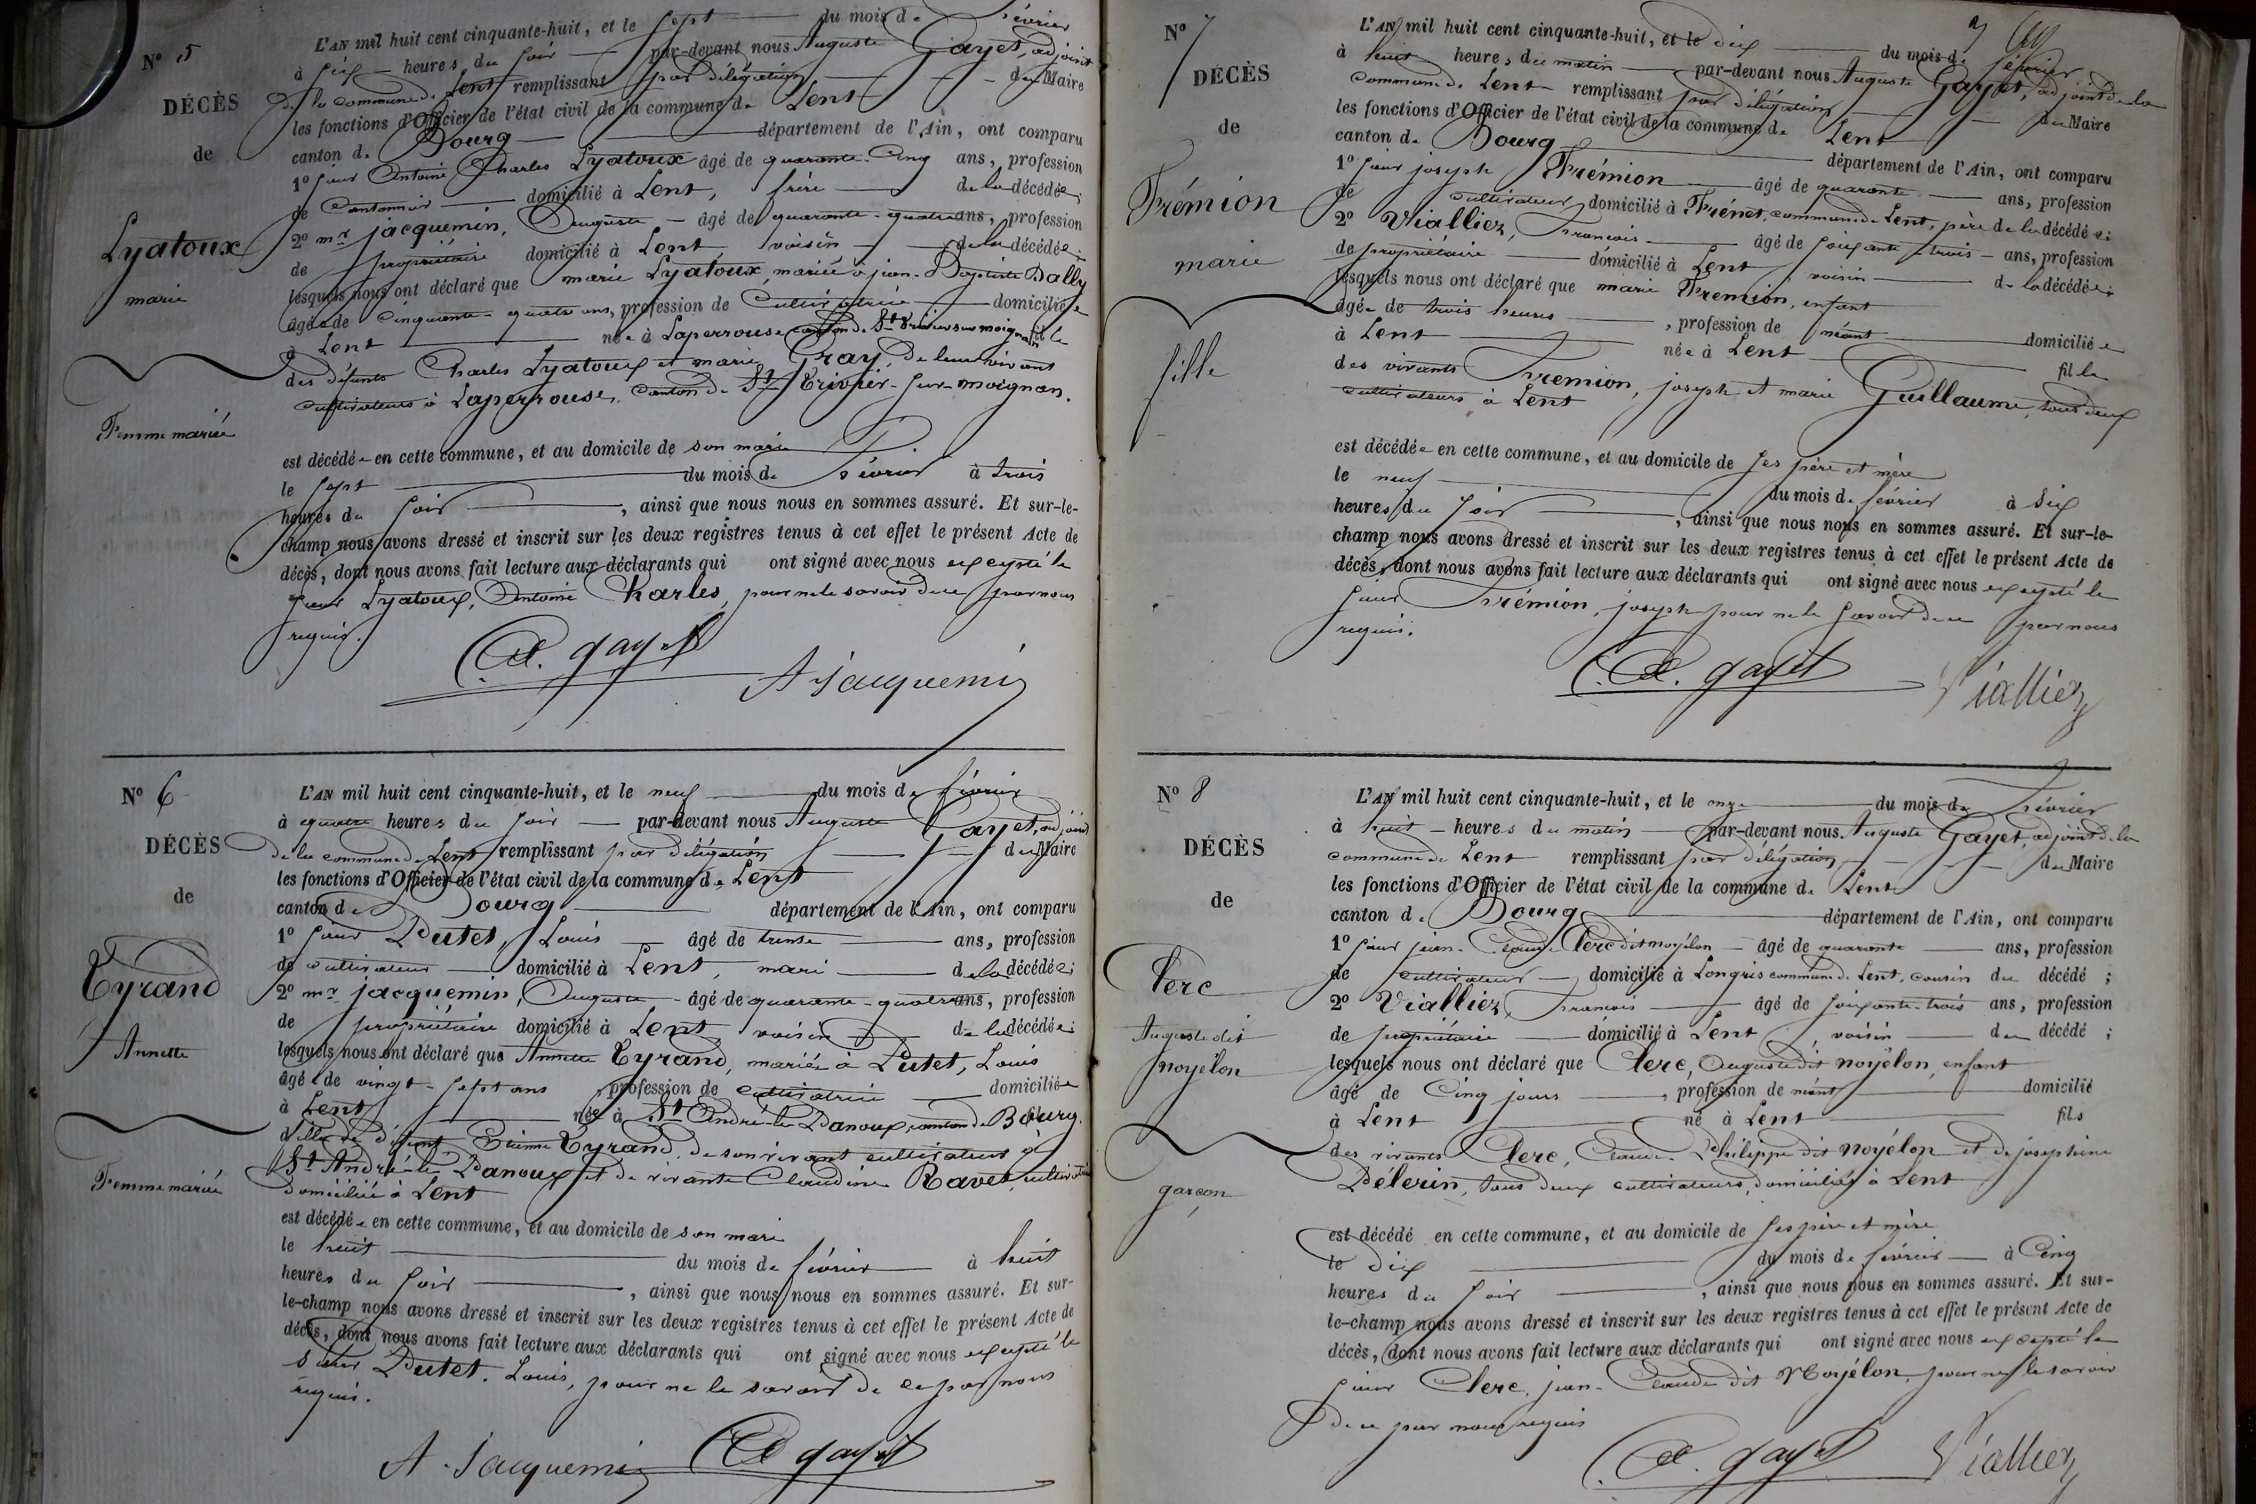 N° 5
DÉCÈS
de
Lyatoux
marie
Femme mariée
L'AN mil huit cent cinquante-huit, et le sept du mois de février
à six heures du soir par-devant nous Auguste Gayet, adjoint
de la commune de Lent remplissant par délégation du Maire
les fonctions d'Officier de l'état civil de la commune de Lent
canton de Bourg département de l'Ain, ont comparu
1° sieur Antoine Charles Lyatoux âgé de quarante-cinq ans, profession
de cantonnier domicilié à Lent, frère de la décédée;
2° mr jacquemin, Auguste âgé de quarante-quatre ans, profession
de propriétaire domicilié à Lent, voisin de la décédée;
lesquels nous ont déclaré que marie Lyatoux, mariée à jean-Baptiste Bally
âgée de cinquante-quatre ans, profession de cultivatrice domiciliée
à Lent née à Laperrouse canton de St Trivier sur moignan fille
des défunts Charles Lyatoux et marie Gray, de leur vivant
cultivateurs à Laperrouse, canton de St Trivier-sur-moignan.
est décédée en cette commune, et au domicile de son marie
le sept du mois de Février à trois
heures du soir, ainsi que nous nous en sommes assuré. Et sur-le-
champ nous avons dressé et inscrit sur les deux registres tenus à cet effet le présent Acte de
décès, dont nous avons fait lecture aux déclarants qui ont signé avec nous excepté le
sieur Lyatoux, Antoine Charles, pour ne le savoir de ce par nous
requis.
A. gayet
A Jacquemin
N° 6
DÉCÈS
de
Tyrand
Annette
Femme mariée
L'AN mil huit cent cinquante-huit, et le neuf du mois de février
à quatre heures du soir par-devant nous Auguste Gayet, adjoint
de la commune de Lent remplissant par délégation du Maire
les fonctions d'Officier de l'état civil de la commune de Lent
canton de Bourg département de l'Ain, ont comparu
1° sieur Dutet, Louis âgé de trente ans, profession
de cultivateur domicilié à Lent, mari de la décédée;
2° mr jacquemin, Auguste âgé de quarante-quatre ans, profession
de propriétaire domicilié à Lent, voisin de la décédée;
lesquels nous ont déclaré que Annette Tyrand, mariée à Dutet, Louis
âgée de vingt-sept ans, profession de cultivatrice domiciliée
à Lent née à St André-le-Panoux, canton de Bourg.
fille de défunt Etienne Tyrand, de son vivant cultivateur à
St André-le-Panoux et de vivante Claudine Ravet, cultivatrice
domiciliée à Lent
est décédée en cette commune, et au domicile de son mari
le huit du mois de février à huit
heures du soir, ainsi que nous nous en sommes assuré. Et sur-
le-champ nous avons dressé et inscrit sur les deux registres tenus à cet effet le présent Acte de
décès, dont nous avons fait lecture aux déclarants qui ont signé avec nous excepté le
sieur Dutet, Louis, pour ne le savoir de ce par nous
requis.
A. Jacquemin
A gayet
N° 7
DÉCÈS
de
Frémion
marie
fille
L'AN mil huit cent cinquante-huit, et le dix du mois de février
à huit heures du matin par-devant nous Auguste Gayet, adjoint de la
commune de Lent remplissant par délégation du Maire
les fonctions d'Officier de l'état civil de la commune de Lent
canton de Bourg département de l'Ain, ont comparu
1° sieur joseph Frémion âgé de quarante ans, profession
de cultivateur domicilié à Frénet, commune de Lent, père de la décédée;
2° Viallier, François âgé de soixante-trois ans, profession
de propriétaire domicilié à Lent, voisin de la décédée;
lesquels nous ont déclaré que marie Fremion, enfant
âgée de trois heures, profession de néant domiciliée
à Lent née à Lent fille
des vivants Fremion, joseph et marie Guillaume, tous deux
cultivateurs à Lent
est décédée en cette commune, et au domicile de ses père et mère
le neuf du mois de février à six
heures du soir, ainsi que nous nous en sommes assuré. Et sur-le-
champ nous avons dressé et inscrit sur les deux registres tenus à cet effet le présent Acte de
décès, dont nous avons fait lecture aux déclarants qui ont signé avec nous excepté le
sieur Frémion, joseph pour ne le savoir de ce par nous
requis.
A. gayet
Viallier
N° 8
DÉCÈS
de
Clerc
Auguste dit
noyélon
garçon
L'AN mil huit cent cinquante-huit, et le onze du mois de Février
à huit heures du matin par-devant nous Auguste Gayet, adjoint de la
commune de Lent remplissant par délégation du Maire
les fonctions d'Officier de l'état civil de la commune de Lent
canton de Bourg département de l'Ain, ont comparu
1° sieur jean-Claude Clerc dit noyélon âgé de quarante ans, profession
de cultivateur domicilié à Longris commune de Lent, cousin du décédé;
2° Viallier, François âgé de soixante-trois ans, profession
de propriétaire domicilié à Lent, voisin du décédé;
lesquels nous ont déclaré que Clerc, Auguste dit noyélon, enfant
âgé de Cinq jours, profession de néant domicilié
à Lent né à Lent fils
des vivants Clerc, Claude-Philippe dit noyélon et de josephine
Pélerin, tous deux cultivateurs, domiciliés à Lent
est décédé en cette commune, et au domicile de ses père et mère
le dix du mois de février à Cinq
heures du soir, ainsi que nous nous en sommes assuré. Et sur-
le-champ nous avons dressé et inscrit sur les deux registres tenus à cet effet le présent Acte de
décès, dont nous avons fait lecture aux déclarants qui ont signé avec nous excepté le
sieur Clerc, jean-Claude dit Noyélon, pour ne le savoir
de ce par nous requis
A. gayet
Viallier